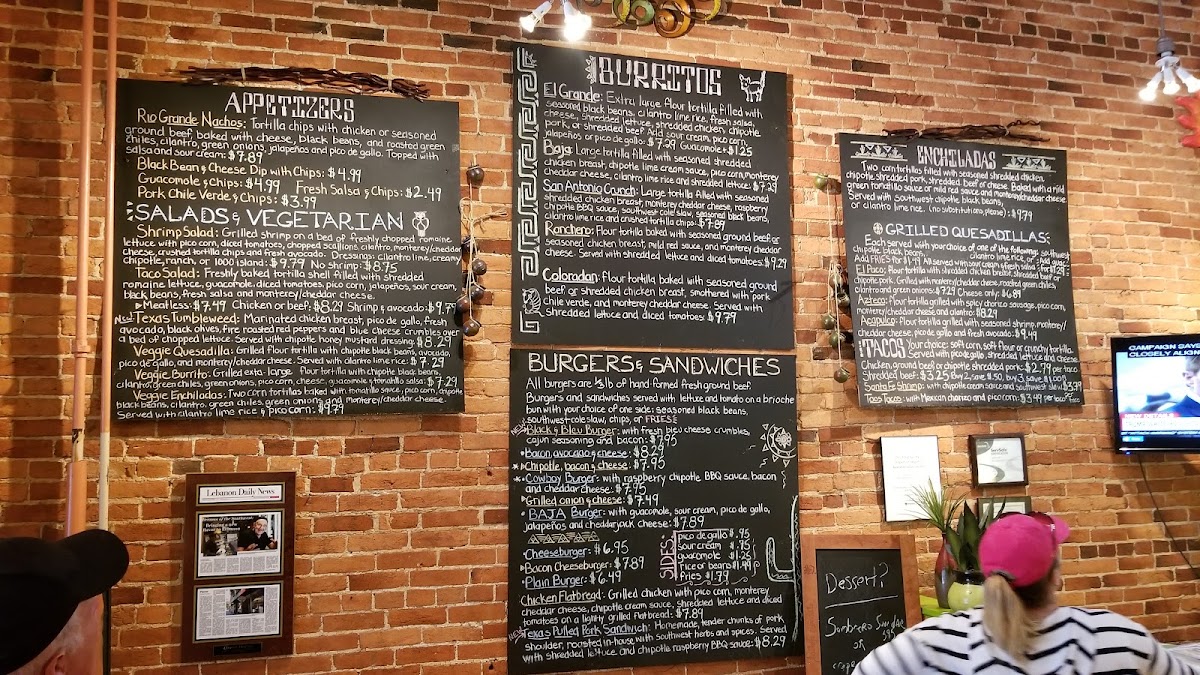 APPETIZERS
Rio Grande Nachos: Tortilla chips with chicken or seasoned
ground beef, baked with cheese, black beans, and roasted green
chiles, cilantro, green onions, jalapeños and pico de gallo. Topped with
salsa and sour cream: $7.89
Black Bean & Cheese Dip with Chips: $4.99
Guacomole & Chips: $4.99 Fresh Salsa & Chips: $2.49
Pork Chile Verde & Chips: $3.99
SALADS & VEGETARIAN
Shrimp Salad: Grilled shrimp on a bed of freshly chopped romaine
lettuce with pico corn, diced tomatoes, chopped scallions, cilantro, monterey/cheddar
cheese, crushed tortilla chips and fresh avocado. Dressings: cilantro lime, creamy
chipotle, ranch, or 1000 island: $9.79 No shrimp: $8.75
Taco Salad: Freshly baked tortilla shell filled with shredded
romaine lettuce, guacomole, diced tomatoes, pico corn, jalapeños, sour cream,
black beans, fresh salsa and monterey/cheddar cheese.
Meatless: $7.49 Chicken or beef: $8.29 Shrimp & avocado: $9.75
New! Texas Tumbleweed: Marinated chicken breast, pico de gallo, fresh
avocado, black olives, fire roasted red peppers and blue cheese crumbles over
a bed of chopped lettuce. Served with chipotle honey mustard dressing. $8.29
Veggie Quesadilla: Grilled flour tortilla with chipotle black beans, avocado,
pico de gallo, and monterey/cheddar cheese. Served with cilantro lime rice: $7.29
Veggie Burrito: Grilled extra-large flour tortilla with chipotle black beans,
cilantro, green chiles, green onions, pico corn, cheese, guacomole & tomatillo salsa: $7.29
Veggie Enchiladas: Two corn tortillas baked with tomatillo sauce, pico corn, chipotle
black beans, cilantro, green chiles, green onions and monterey/cheddar cheese.
Served with cilantro lime rice & pico corn: $9.79
BURRITOS
El Grande: Extra large flour tortilla filled with
seasoned black beans, cilantro lime rice, fresh salsa,
cheese, shredded lettuce, shredded chicken, chipotle
pork, or shredded beef. Add sour cream, pico corn,
jalapeños or pico de gallo: $7.29 Guacomole + $1.25
Baja: Large tortilla filled with seasoned shredded
chicken breast, chipotle lime cream sauce, pico corn, monterey
cheddar cheese, cilantro lime rice and shredded lettuce: $7.29
San Antonio Crunch: Large tortilla filled with seasoned
shredded chicken breast, monterey cheddar cheese, raspberry
chipotle BBQ sauce, southwest cole slaw, seasoned black beans,
cilantro lime rice and crushed tortilla chips: $7.89
Ranchero: Flour tortilla baked with seasoned ground beef or
seasoned chicken breast, mild red sauce, and monterey cheddar
cheese. Served with shredded lettuce and diced tomatoes: $9.29
Coloradan: Flour tortilla baked with seasoned ground
beef or shredded chicken breast, smothered with pork
chile verde, and monterey cheddar cheese. Served with
shredded lettuce and diced tomatoes: $9.79
BURGERS & SANDWICHES
All burgers are ⅓ lb of hand-formed fresh ground beef.
Burgers and sandwiches served with lettuce and tomato on a brioche
bun with your choice of one side: seasoned black beans,
southwest cole slaw, chips, or FRIES
New! Black & Bleu Burger: with fresh bleu cheese crumbles,
cajun seasoning and bacon: $7.95
Bacon, avocado & cheese: $8.29
Chipotle, bacon & cheese: $7.95
Cowboy Burger: with raspberry chipotle BBQ sauce, bacon
and cheddar cheese: $7.95
Grilled onion & cheese: $7.49
BAJA Burger: with guacomole, sour cream, pico de gallo,
jalapeños and cheddarjack cheese: $7.89
Cheeseburger: $6.95
Bacon Cheeseburger: $7.89
Plain Burger: $6.49
SIDES:
pico de gallo $.95
sour cream $.75
guacomole $1.25
rice or beans $1.49
fries $1.79
Chicken Flatbread: Grilled chicken with pico corn, monterey
cheddar cheese, chipotle cream sauce, shredded lettuce and diced
tomatoes on a lightly grilled flatbread: $7.89
New! Texas Pulled Pork Sandwich: Homemade, tender chunks of pork
shoulder, roasted in-house with Southwest herbs and spices. Served
with shredded lettuce and chipotle raspberry BBQ sauce: $8.29
ENCHILADAS
Two corn tortillas filled with seasoned shredded chicken,
chipotle shredded pork, shredded beef, or cheese. Baked with a mild
green tomatillo sauce or mild red sauce and monterey/cheddar cheese.
Served with Southwest chipotle black beans,
or cilantro lime rice. (no substitutions, please): $9.79
GRILLED QUESADILLAS
Each served with your choice of one of the following: southwest
chipotle, black beans, cilantro lime rice, or
Add FRIES for $1.49 All served with sour cream & fresh salsa
El Paso: Flour tortilla with shredded chicken breast, shredded beef or
chipotle pork. Grilled with monterey/cheddar cheese, roasted green chiles,
cilantro and green onions: $7.29 Cheese only: $6.89
Azteca: Flour tortilla grilled with spicy chorizo sausage, pico corn,
monterey/cheddar cheese and cilantro: $8.29
Acapulco: Flour tortilla grilled with seasoned shrimp, monterey/
cheddar cheese, pico de gallo and fresh avocado: $9.49
TACOS Your choice: soft corn, soft flour or crunchy tortilla.
Served with pico de gallo, shredded lettuce and cheese
Chicken, ground beef or chipotle shredded pork: $2.79 per taco.
Shredded beef: $3.25 Buy 2, save $.50, buy 3, save $1.00!
Santa Fe Shrimp: with chipotle cream sauce and southwest slaw: $3.79
Taos Tacos: with Mexican chorizo and pico corn: $3.49 per taco
Lebanon Daily News
CAMPAIGN SAYS
CLOSELY ALIGN
NEW DETAILS
Dessert?
Sombrero Sundae